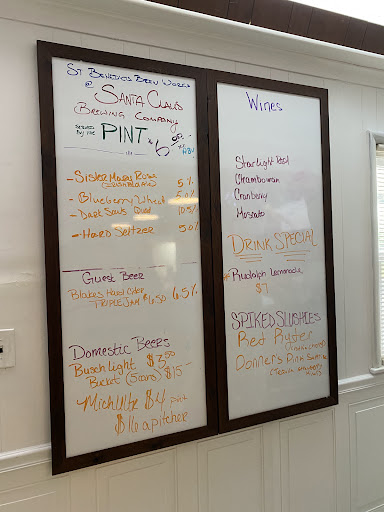 St Benedict's Brew Works
@ Santa Claus
Brewing Company
served
by the PINT $6.50
*ABV
- Sister Mary Rose 5%
- Blueberry Wheat
- Dark Souls Quad 10.5%
- Hard Seltzer 5.0%
Guest Beer
Blakes Hard Cider
TRIPLE JAM $6.50 6.5%
Domestic Beers
Busch light $3.00
Bucket (5 cans) $15
Mich Ultra $4 pint
$16 a pitcher
Wines
Starlight Red
Chambourcin
Cranberry
Moscato
DRINK SPECIAL
Rudolph Lemonade
$7
SPIKED SLUSHIES
Red Ryder
Donner's Pink